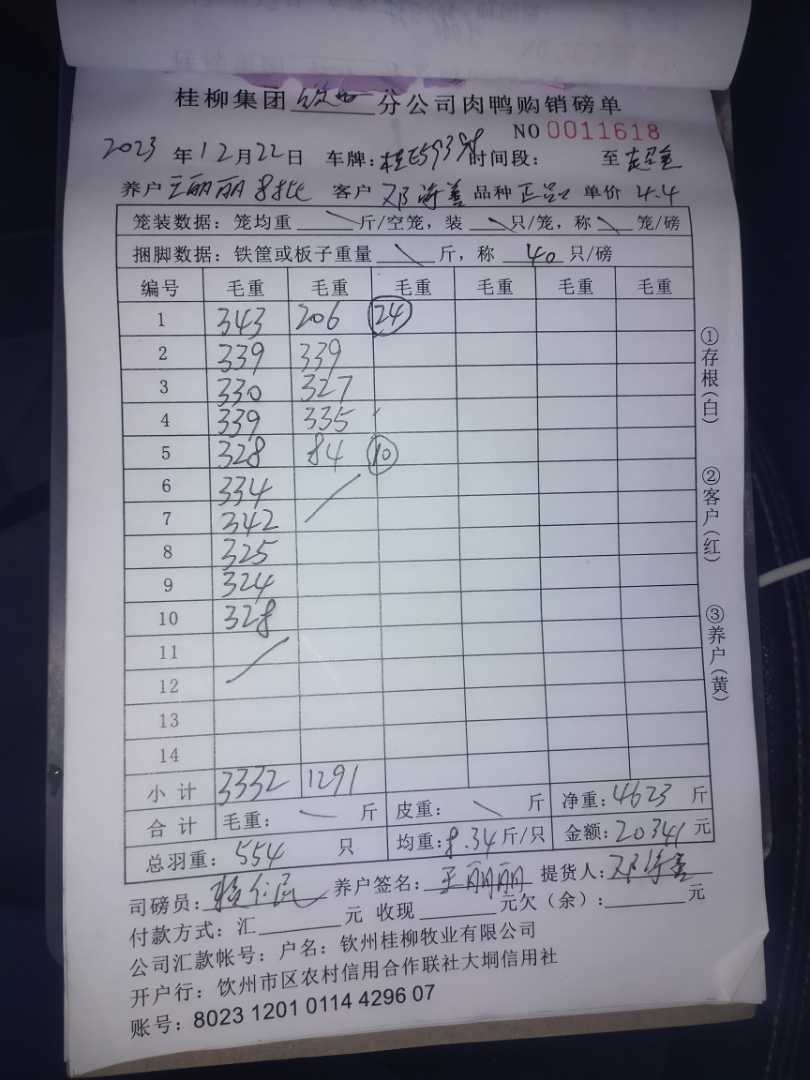 桂柳集团 钦州 分公司肉鸭购销磅单
NO 0011618
2023 年 12 月 22 日 车牌: 时间段: 至
养户 王丽丽 客户 邓海善 品种 单价 4.4
笼装数据: 笼均重 \ 斤/空笼, 装 \ 只/笼, 称 \ 笼/磅
捆脚数据: 铁筐或板子重量 \ 斤, 称 40 只/磅
编号 毛重 毛重 毛重 毛重 毛重 毛重
1 343 206 24
2 339 339
3 330 327
4 339 335
5 328 84 10
6 334
7 342
8 325
9 324
10 328
11
12
13
14
小计 3332 1291
合计 毛重: 斤 皮重: \ 斤 净重: 4623 斤
总羽重: 554 只 均重: 8.34 斤/只 金额: 20341 元
司磅员: 养户签名: 王丽丽 提货人: 邓海善
付款方式: 汇 元 收现 元欠(余): 元
公司汇款帐号: 户名: 钦州桂柳牧业有限公司
开户行: 饮州市区农村信用合作联社大垌信用社
账号: 8023 1201 0114 4296 07
①存根(白)
②客户(红)
③养户(黄)